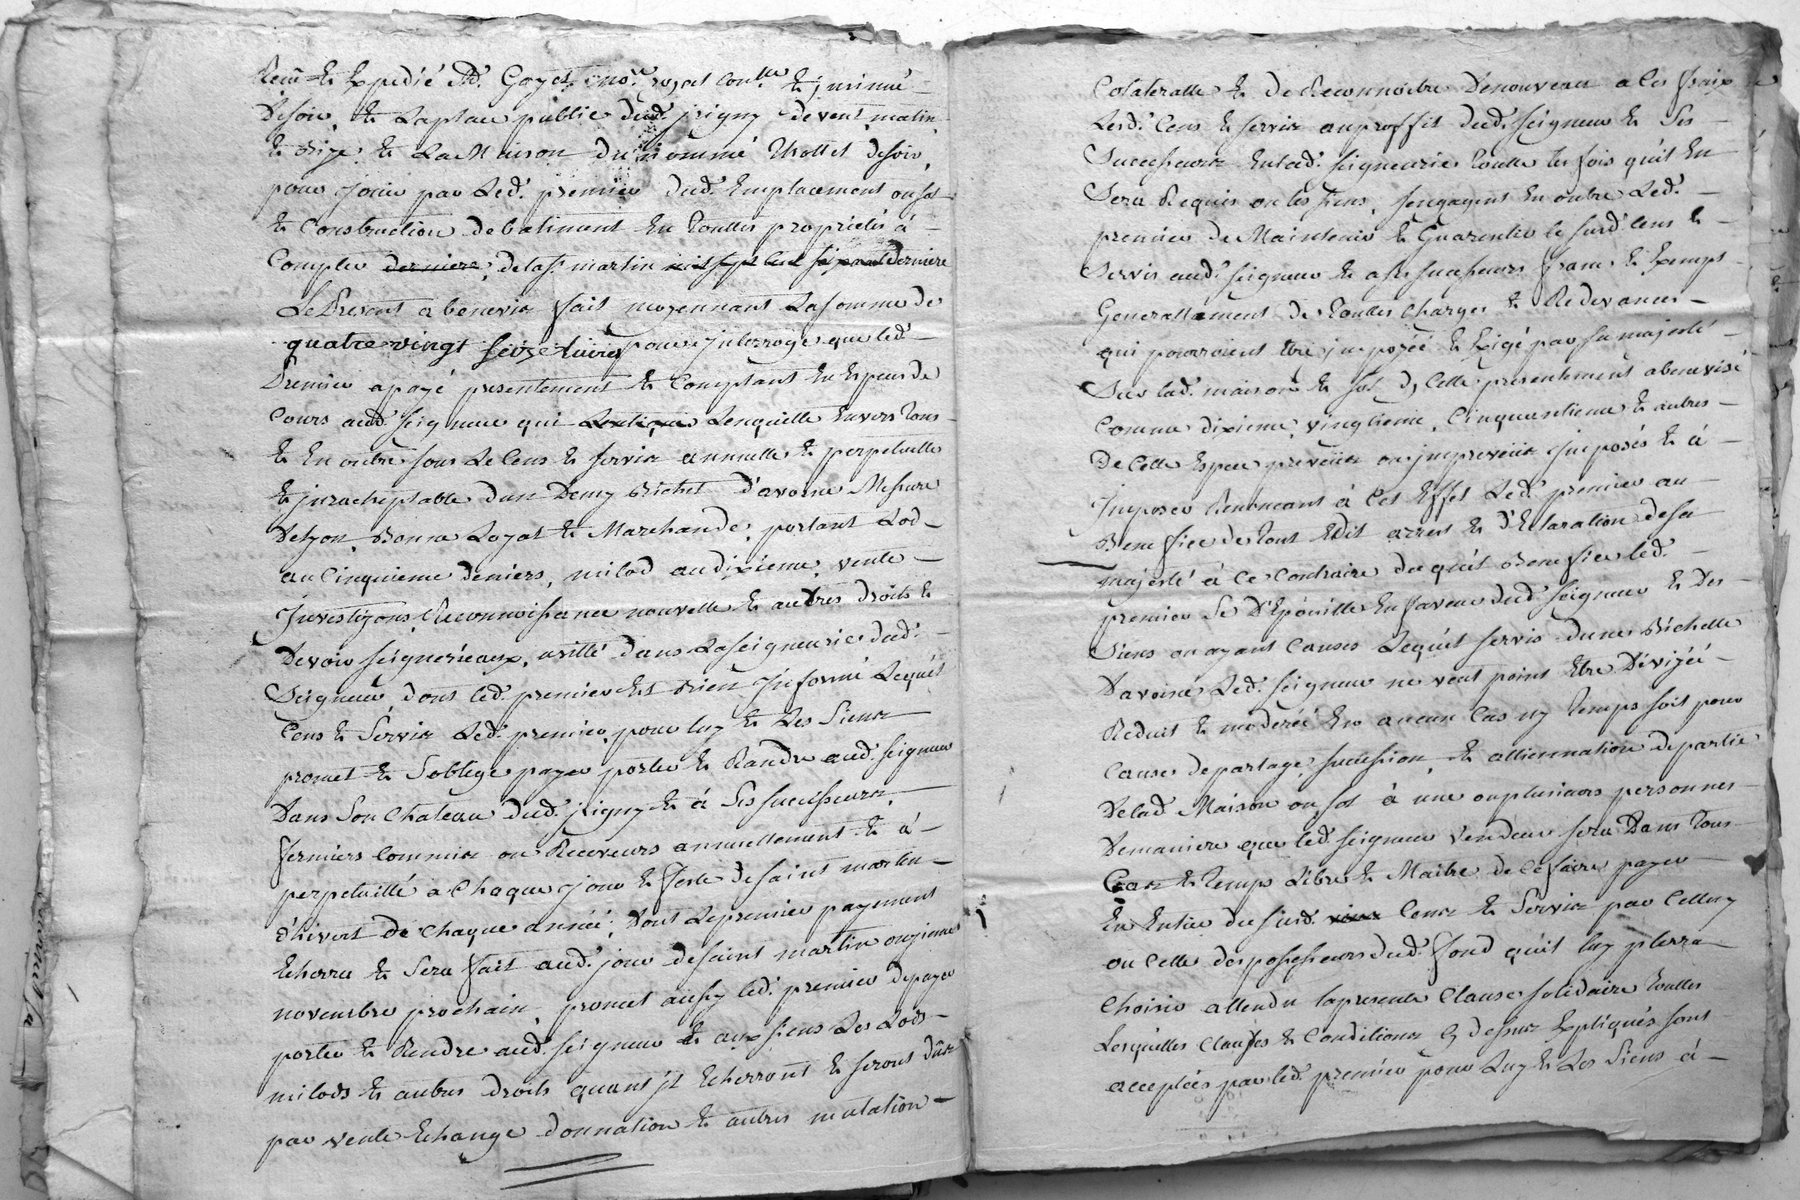 Reçu & Expedié Md. Gayet no.re royal &
De soir, & La place public dud. jrigny de vent, matin,
& bize, & La Maison du nommé de soir,
pour jouir par Led. premier dud. Emplacement ou sol
& Construction de batiment En Touttes proprietés à
Compter derniere, de la St martin derniere
Le Present abenevis fait moyennant La somme de
quatre vingt seize Livres pour que led.
Premier a payé presentement & Comptant En Especes de
Cours aud. seigneur qui Lenquitte Envers tous
& En outre sous Le Cens & servis annuelle & perpetuelle
& jnracheptable dun Demy Bichet D'avoine Mesure
De lyon, Bonne Loyal & Marchande, portant Lod
au Cinquieme deniers, milod au dixieme, vente
Jnvestizons, Reconnoissance nouvelle & autres droits &
Devoir seigneurieaux, usitté dans La seigneurie dud.
Seigneur, dont led. premier Est Bien Jnformé Lequel
Cens & Servis Led. premier, pour luy & Les Siens
promet & S'oblege payer porter & Randre aud. seigneur
Dans Son Chateau dud. jrigny & à Ses successeurs,
fermiers Commis ou Receveurs annuellement & à
perpetuitté a Chaque jour & feste de saint martin
d'hivert de chaque année, Dont Le premier payement
Echerra & Sera fait aud. jour de saint martin onzieme
novembre prochain, promet aussy led. premier de payer
porter & Rendre aud. seigneur & aux siens Les Lods
milods & autres droits quant jl Echerront & seront dûs
par vente Echange donnation & autres mutation
Colateralle & De Reconnoitre De nouveau a ses fraix
Lesd. Cens & servis au proffit dud. seigneur & Ses
Successeurs En lad. seigneurie toutte les fois qu'il En
Sera Requis ou les siens, sengagent En outre Led.
premier de Maintenir & Guarentir le susd. Cens &
Servis aud. seigneur & a ses successeurs franc & Exempt
Generallement de touttes charges & Redevances
qui pourroient Etre jmpozéé & Exigé par sa majesté
Sur lad. maison & sol dy Celle presentement abenevisé
Comme dixieme, vingtieme, Cinquantieme & autres
De Cette Espece preveües ou jmpreveües jmposés & à
Jmposer Renoncant à Cet Effet Led. premier au
Benefice de tout Edit arrest & D'Eclaration de sa
majesté à Ce Contraire du quél Benefice led.
premier Se D'Epoüille En faveur dud. seigneur & Des
Siens ou ayant Causes Lequél servis dune Bichette
Davoine Led. seigneur ne veut point Etre Dévizéé
Reduit & moderéé En aucun Cas ny temps soit pour
Causes de partage, succession, & allienation de partie
De lad. Maison ou sol à une ou plusieurs personnes
De maniere que led. seigneur Vendeur sera Dans tous
Cas & temps Libre & Maitre de Ce faire payer
En Entier du susd. Cens & Servis par Celluy
ou Celle des possesseurs dud. fond qu'il luy plerra
Choisir attendu la presente Clause solidaire touttes
Lesquelles clauses & Conditions Cy dessus Expliqués sont
acceptées par led. premier pour Luy & Les Siens à